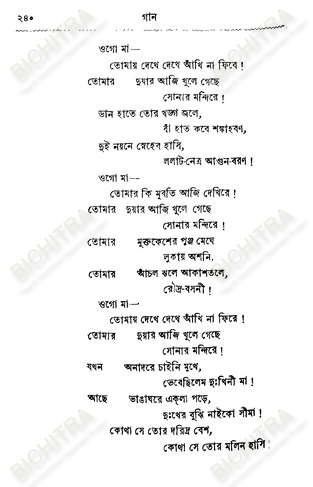 ২৪০ গান
ওগো মা—
তোমায় দেখে দেখে আঁখি না ফিরে!
তোমার দুয়ার আজি খুলে গেছে
সোনার মন্দিরে!
ডান হাতে তোর খড়্গ জ্বলে,
বাঁ হাত করে শঙ্কাহরণ,
দুই নয়নে স্নেহের হাসি,
ললাট-নেত্র আগুন-বরণ!
ওগো মা—
তোমার কি মুরতি আজি দেখিরে!
তোমার দুয়ার আজি খুলে গেছে
সোনার মন্দিরে!
তোমার মুক্তকেশের পুঞ্জ মেঘে
লুকায় অশনি,
তোমার আঁচল ঝলে আকাশতলে,
রৌদ্র-বসনী!
ওগো মা—
তোমায় দেখে দেখে আঁখি না ফিরে!
তোমার দুয়ার আজি খুলে গেছে
সোনার মন্দিরে!
যখন অনাদরে চাইনি মুখে,
ভেবেছিলেম দুঃখিনী মা!
আছে ভাঙাঘরে একলা পড়ে,
দুঃখের বুঝি নাইকো সীমা!
কোথা সে তোর দরিদ্র বেশ,
কোথা সে তোর মলিন হাসি!
BICHITRA
BICHITRA
BICHITRA
BICHITRA
BICHITRA
BICHITRA